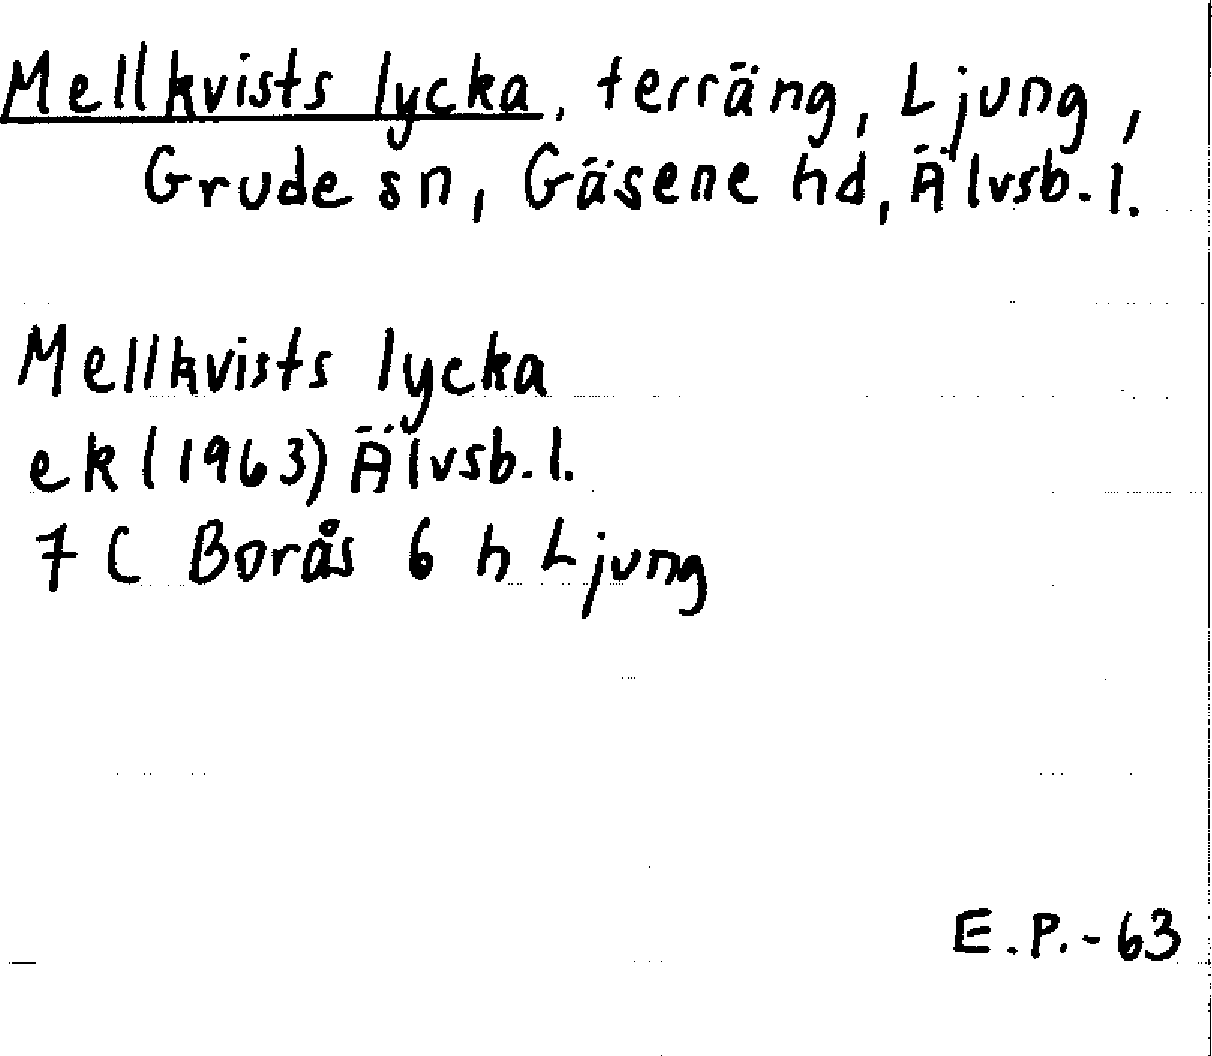 Mellkvists lycka, terräng, Ljung,
Grude sn, Gäsene hd, Älvsb. l.
Mellkvists lycka
ek (1963) Älvsb. l.
7 C Borås 6 h Ljung
E.P.-63